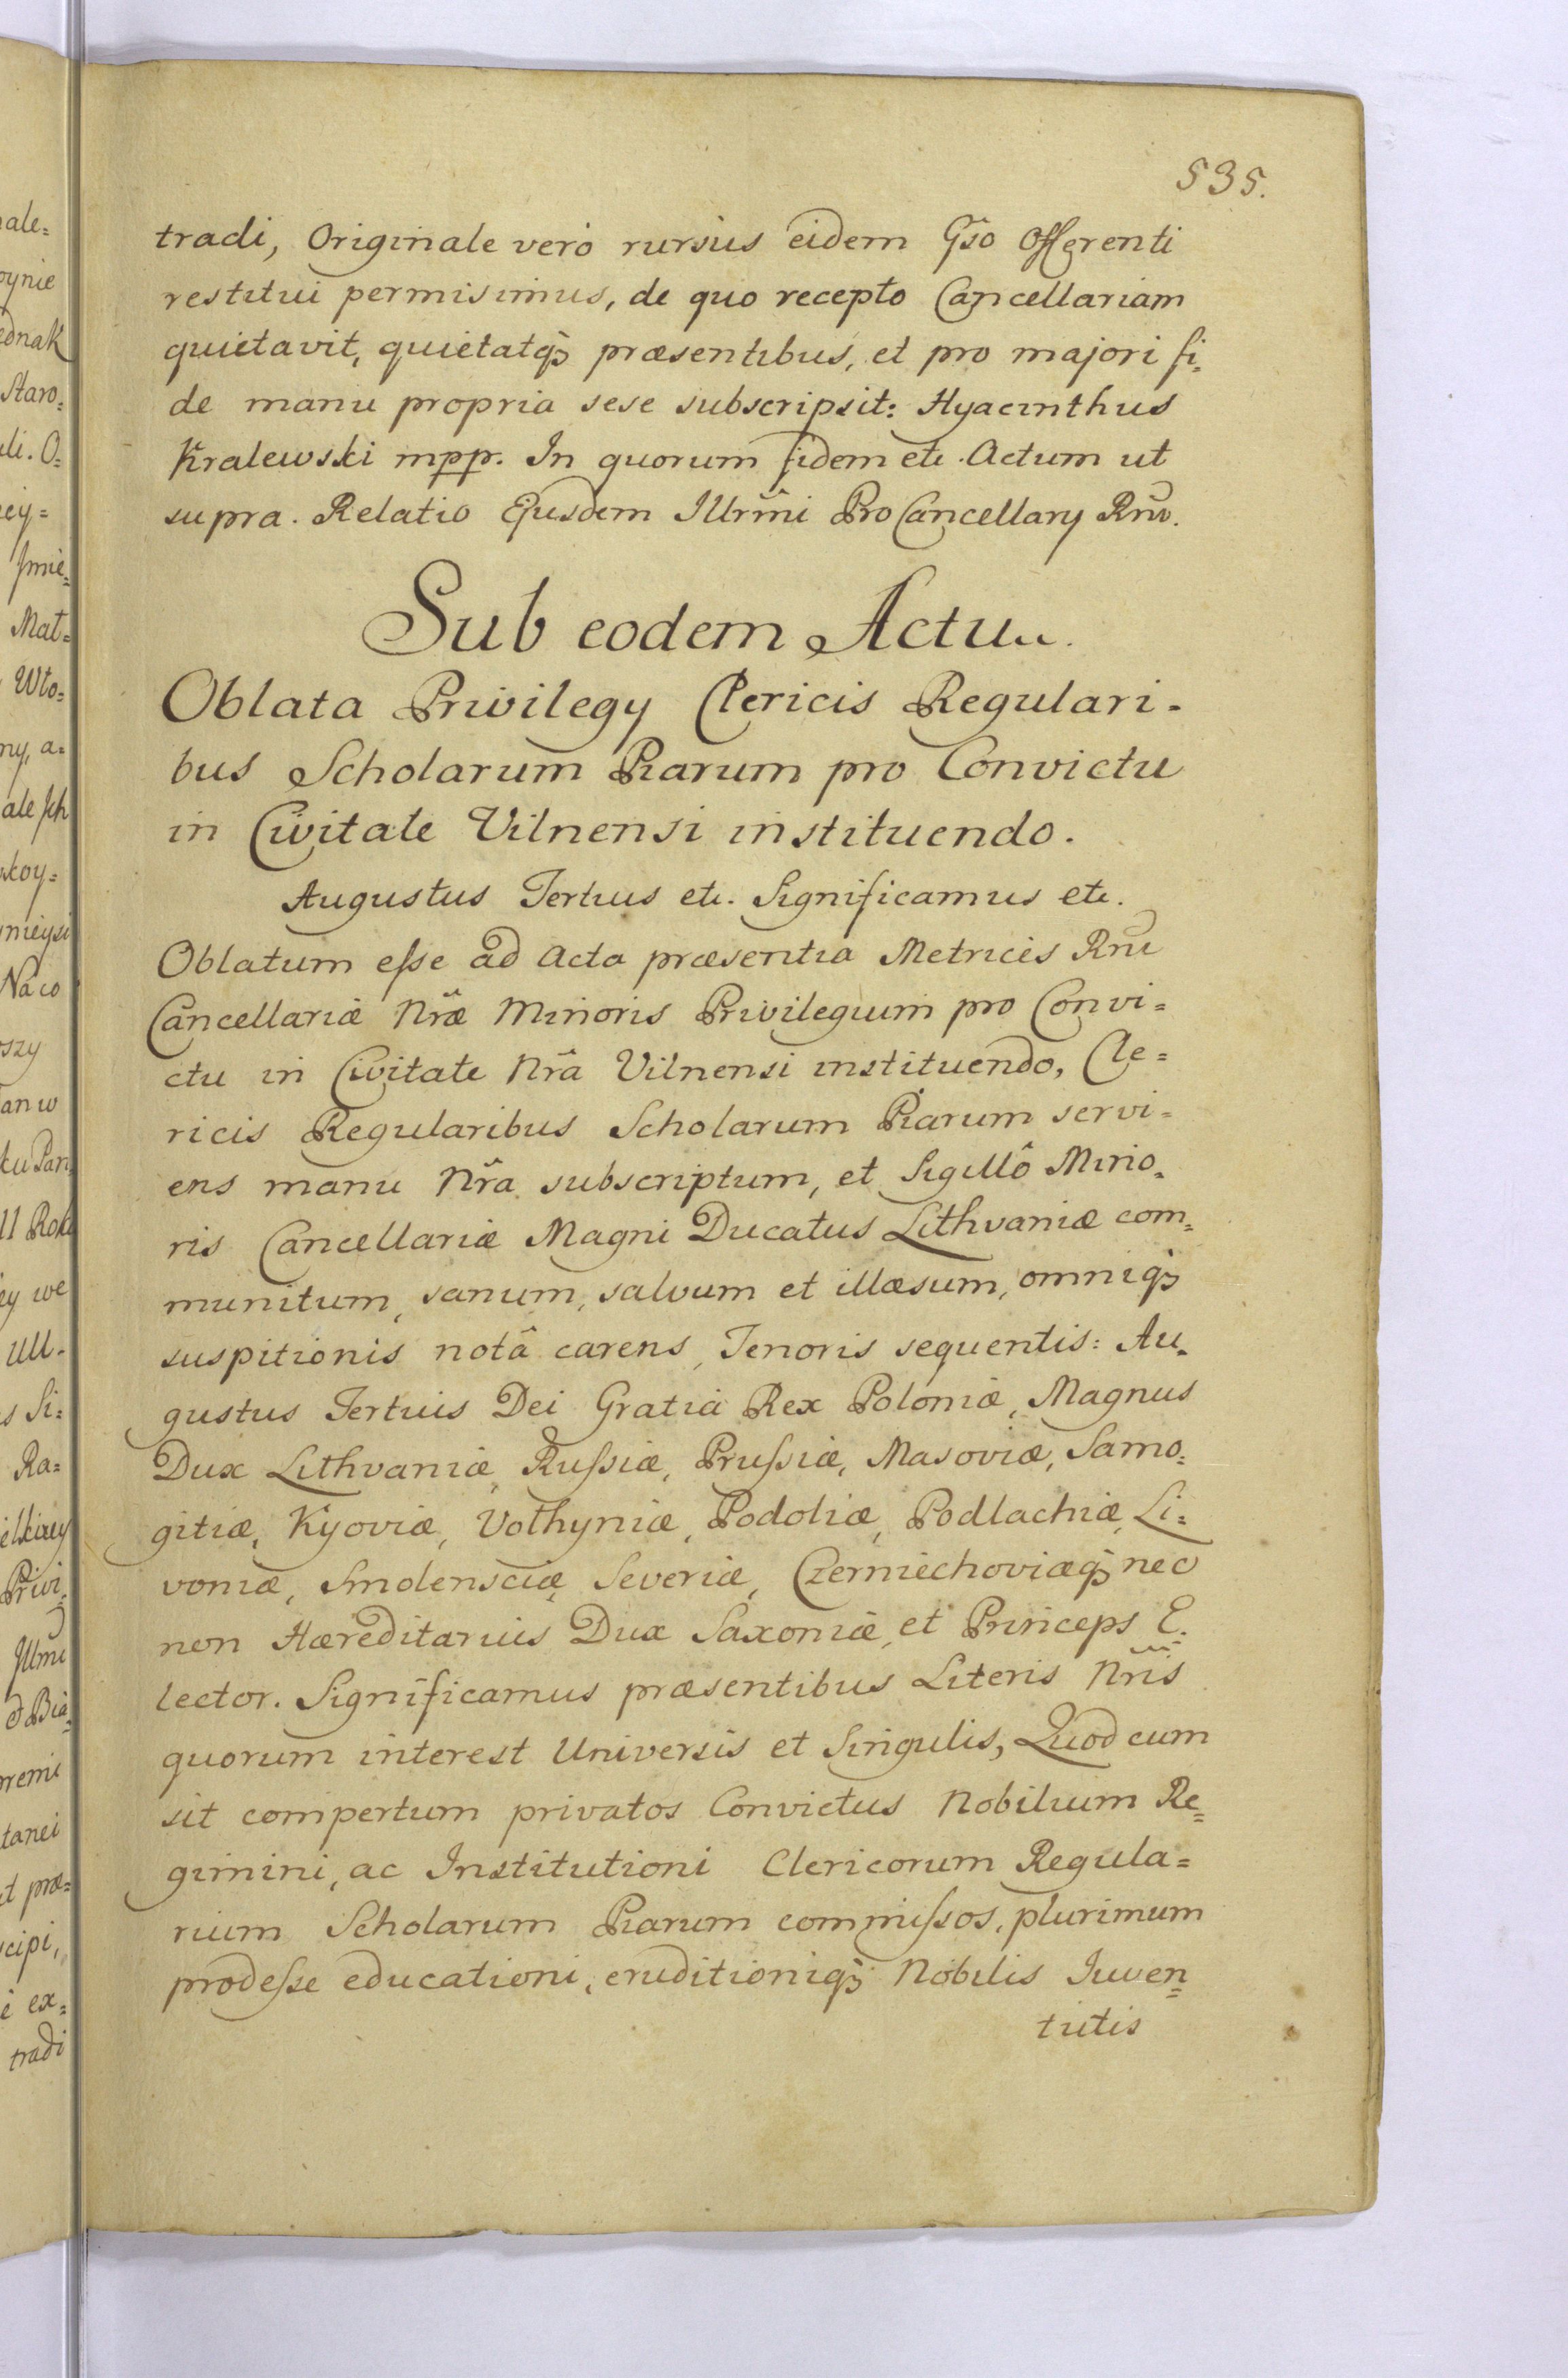 535.
tradi, Originale verò rursùs eidem Gso Offerenti
restitui permisimus, de quo recepto Cancellariam
quietavit, quietatq3 præsentibus, et pro majori fi=
de manu propria sese subscripsit: Hyacinthus
Kralewski mpp. In quorum fidem etc. Actum ut
supra. Relatio Ejusdem Illrmi ProCancellary Rni.
Sub eodem Actu.
Oblata Privilegy Clericis Regulari=
bus Scholarum Piarum pro Convictu
in Civitate Vilnensi instituendo.
Augustus Tertius etc. Significamus etc.
Oblatum esse ad Acta præsentia Metricis Rni
Cancellariæ Nræ Minoris Privilegium pro Convi=
ctu in Civitate Nrâ Vilnensi instituendo, Cle=
ricis Regularibus Scholarum Piarum servi=
ens manu Nrâ subscriptum, et Sigillô Mino=
ris Cancellariæ Magni Ducatus Lithvaniæ com=
munitum, sanum, salvum et illæsum, omniq3
suspitionis notâ carens, Tenoris sequentis: Au=
gustus Tertius Dei Gratia Rex Poloniæ, Magnus
Dux Lithvaniæ, Russiæ, Prussiæ, Masoviæ, Samo=
gitiæ, Kijoviæ, Volhyniæ, Podoliæ, Podlachiæ, Li=
voniæ, Smolensciæ, Severiæ, Czerniechoviæq3 nec
non Hæreditarius Dux Saxoniæ, et Princeps E=
lector. Significamus præsentibus Literis Nris
quorum interest Universis et Singulis, Quod cum
sit compertum privatos Convictus Nobilium Re=
gimini, ac Institutioni Clericorum Regula=
rium Scholarum Piarum commissos, plurimum
prodesse educationi, eruditioniq3 Nobilis Iuven=
tutis